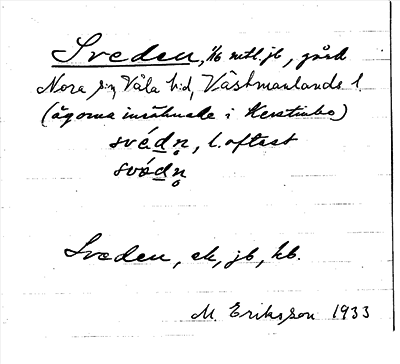 Sveden, 1/6 mtl. jb, gård
Nora sn, Våla hd, Västmanlands l.
(ägorna inräknade i Kerstinbo)
svédn̥, l. oftast
svédn̥
Sveden, ek, jb, kb.
M. Eriksson 1933